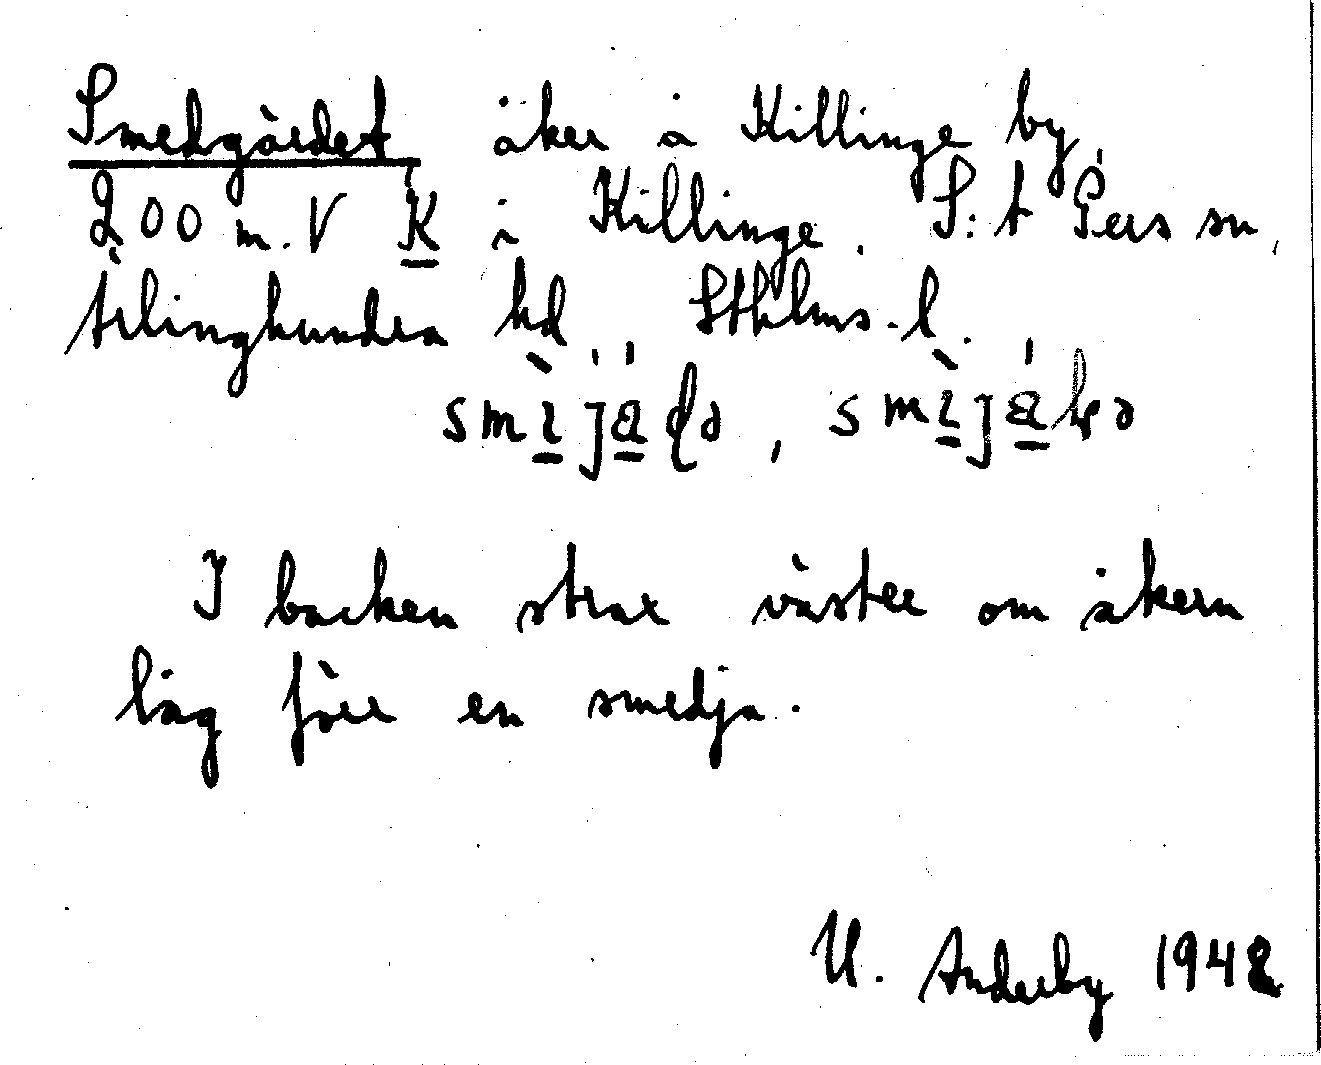 Smedgärdet åker å Killinge by,
200 m. V K i Killinge. S:t Pers sn,
Ärlinghundra hd, Sthlms. l.
I backen strax väster om åkern
låg förr en smedja.
U. Anderby 1942